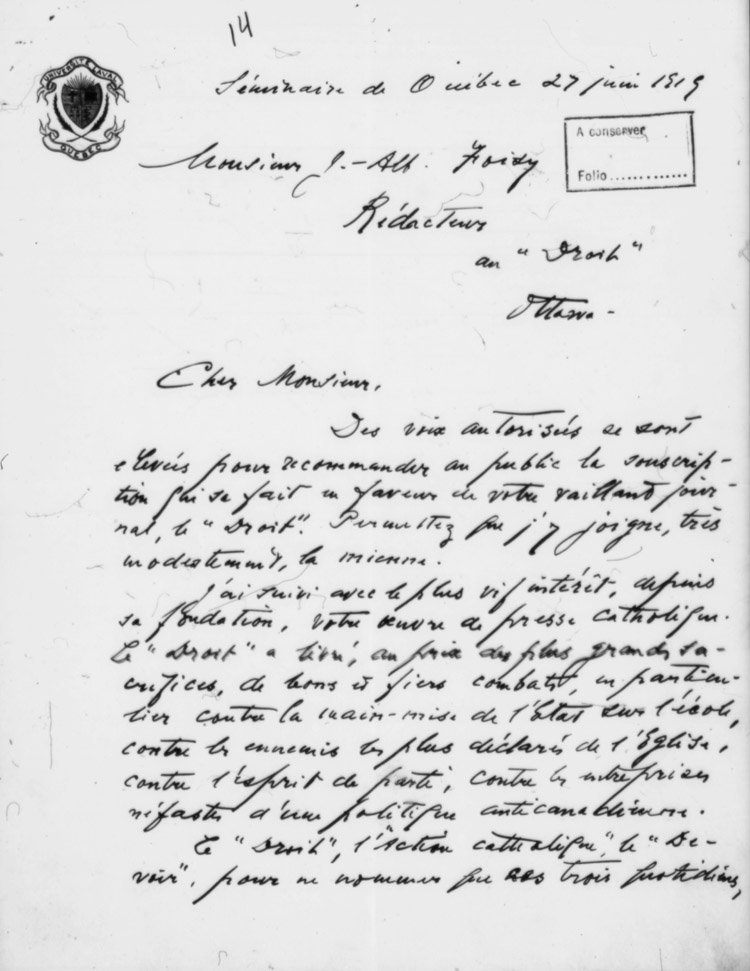 14
UNIVERSITÉ LAVAL
QUÉBEC
Séminaire de Québec 27 juin 1919
A conserver
Folio.............
Monsieur J.-Alb. Foisy
Rédacteur
au "Droit"
Ottawa -
Cher Monsieur,
Des voix autorisées se sont
élevées pour recommander au public la souscrip-
tion qui se fait en faveur de votre vaillant jour-
nal, le "Droit". Permettez que j'y joigne, très
modestement, la mienne.
J'ai suivi avec le plus vif intérêt, depuis
sa fondation, votre œuvre de presse catholique.
Le "Droit" a livré, au prix des plus grands sa-
crifices, de bons et fiers combats, en particu-
lier contre la main-mise de l'Etat sur l'école,
contre les ennemis les plus déclarés de l'Église,
contre l'esprit de parti, contre les entreprises
néfastes d'une politique anticanadienne.
Le "Droit", l'"Action catholique", le "De-
voir", pour ne nommer que ces trois quotidiens,